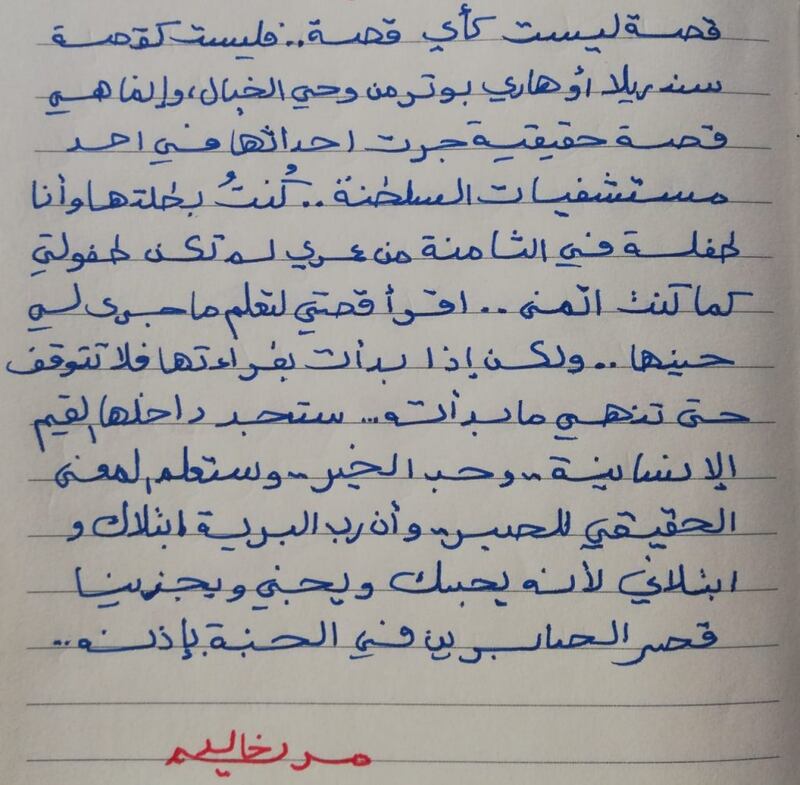 قصة ليست كأي قصة.. فليست كقصة
سندريلا أو هاري بوتر من وحي الخيال، وإنما هي
قصة حقيقية جرت احداثها في احد
مستشفيات السلطنة.. كُنتُ بطلتها وأنا
طفلة في الثامنة من عمري لم تكن طفولتي
كما كنت اتمنى.. اقرأ قصتي لتعلم ما جرى لي
حينها.. ولكن إذا بدأت بقراءتها فلا تتوقف
حتى تنهي ما بدأته.. ستجد داخلها القيم
الإنسانية.. وحب الخير.. وستعلم المعنى
الحقيقي للصبر.. وأن رب البرية ابتلاك و
ابتلاني لأنه يحبك ويحبني ويجزينا
قصر الصابرين في الجنة بإذنه..